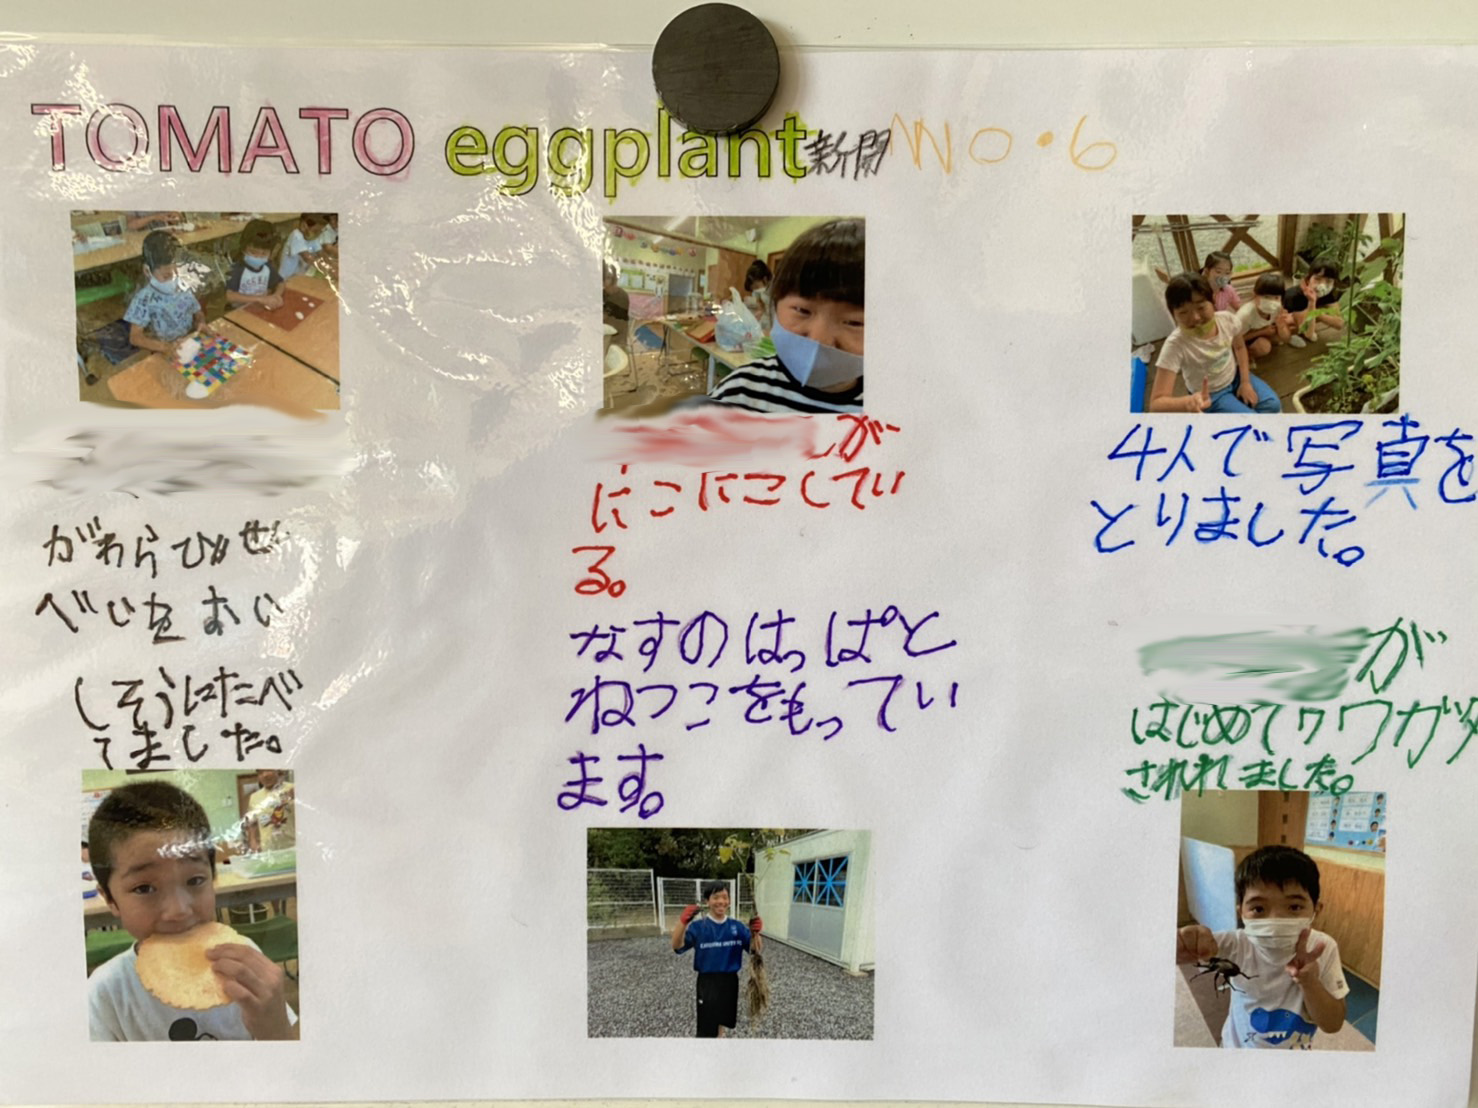 TOMATO eggplant新聞 NO・6
がわらびせん
べいをおい
しそうにたべ
てました。
が
にこにこしてい
る。
なすのはっぱと
ねっこをもってい
ます。
4人で写真を
とりました。
が
はじめてクワガタ
さわれました。